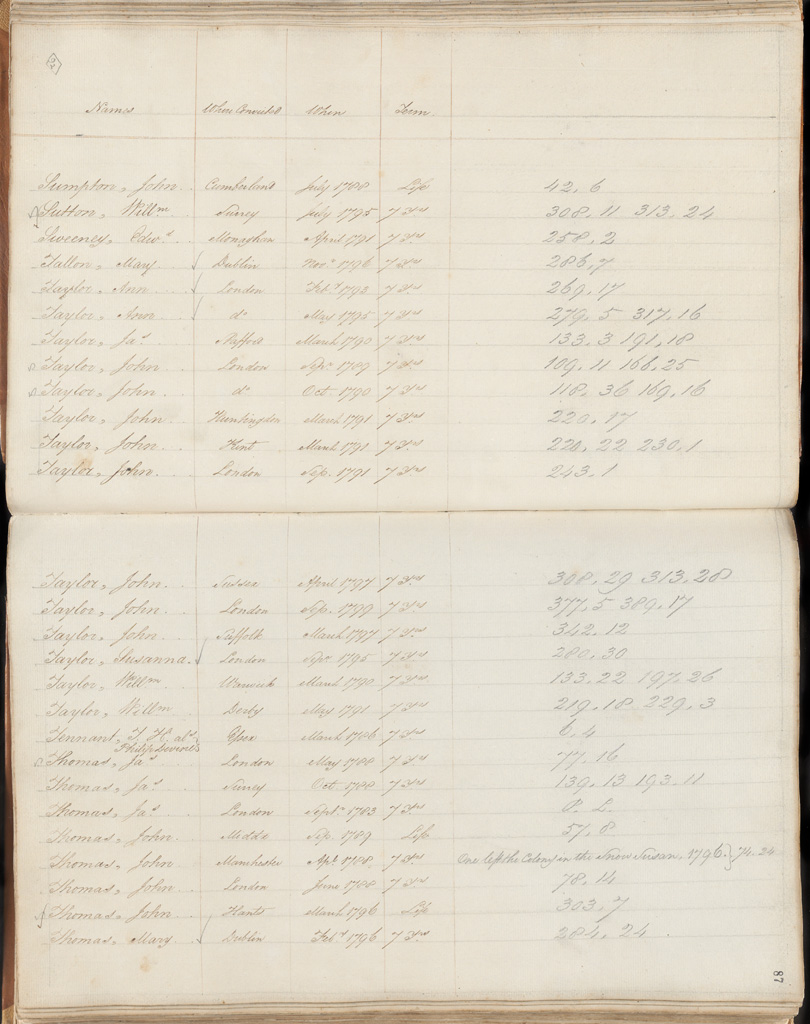 Names Where Convicted When Term
Sumpton, John Cumberland July 1788 Life 42. 6
Sutton, Willm Surrey July 1795 7 Yrs 308. 11 313. 24
Sweeney, Edwd Monaghan April 1791 7 Yrs 258. 2
Tallon, Mary Dublin Novr 1796 7 Yrs 286. 7
Taylor, Ann London Feby 1793 7 Yrs 269. 17
Taylor, Ann do May 1795 7 Yrs 279. 5 317. 16
Taylor, Jas Stafford March 1790 7 Yrs 133. 3 191. 18
Taylor, John London Sepr 1789 7 Yrs 109. 11 166. 25
Taylor, John do Oct 1790 7 Yrs 118. 36 169. 16
Taylor, John Huntingdon March 1791 7 Yrs 220. 17
Taylor, John Kent March 1791 7 Yrs 220. 22 230. 1
Taylor, John London Sep. 1791 7 Yrs 243. 1
Taylor, John Sussex April 1797 7 Yrs 308. 29 313. 28
Taylor, John London Sep. 1799 7 Yrs 377. 5 389. 17
Taylor, John Suffolk March 1797 7 Yrs 342. 12
Taylor, Susanna London Sepr 1795 7 Yrs 280. 30
Taylor, Willm Warwick March 1790 7 Yrs 133. 22 197. 26
Taylor, Willm Derby May 1791 7 Yrs 219. 18 229. 3
Tennant, T. H. als Essex March 1786 7 Yrs 6. 4
Philip Deverell
Thomas, Jas London May 1788 7 Yrs 77. 16
Thomas, Jas Surrey Oct. 1788 7 Yrs 139. 13 193. 11
Thomas, Jas London Septr 1783 7 Yrs P. L.
Thomas, John Middx Sep. 1789 Life 57. 8
Thomas, John Manchester Apl 1788 7 Yrs One left the Colony in the Snow Susan, 1796. } 74. 24
Thomas, John London June 1788 7 Yrs 78. 14
Thomas, John Hants March 1796 Life 303. 7
Thomas, Mary Dublin Feby 1796 7 Yrs 284. 24
87